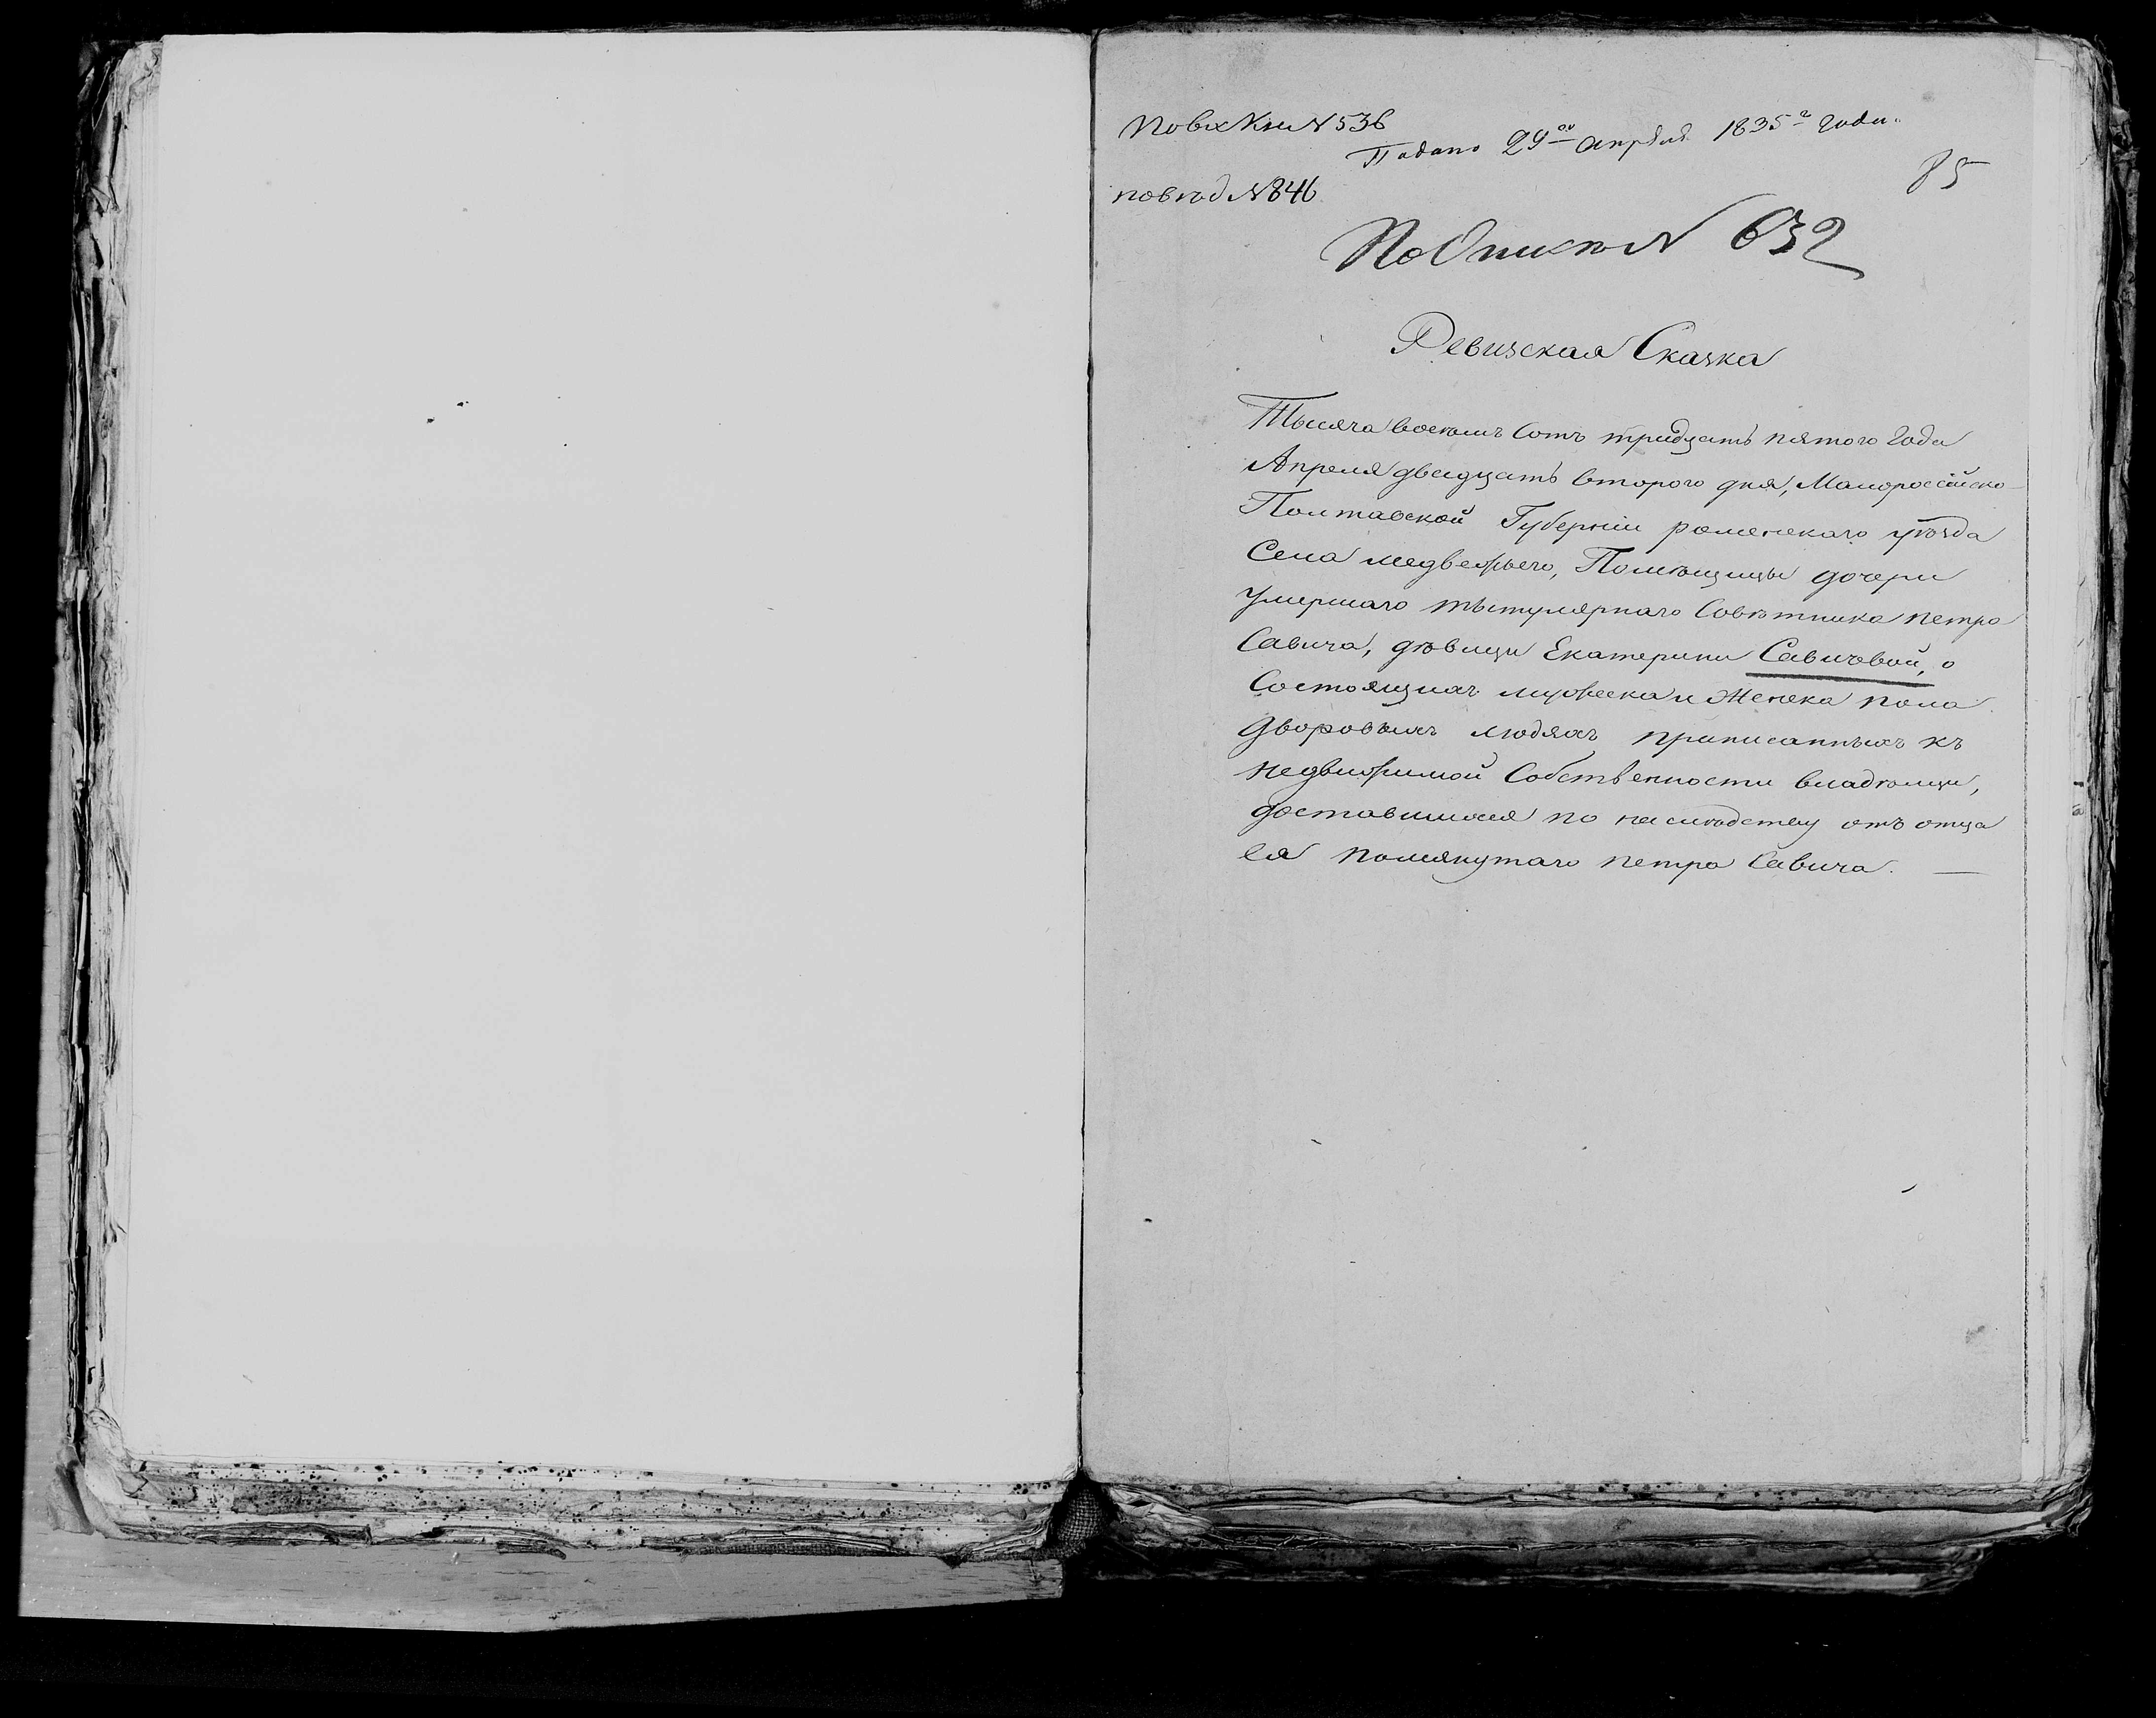 по вх Кни № 536
Подано 29го апреля 1835г года.
85
повъд № 846
По Описи № 632
Ревизская Сказка
Тысяча восемь Сотъ тридцать пятого года
Апреля двадцать второго дня, Малороссійско-
Полтавской Губерніи роменскаго уѣзда
Села медвежьего, Помѣщицы дочери
умершаго тытулярнаго Совѣтника петра
Савича, дѣвицы Екатерины Савичевой, о
Состоящихъ мужеска и Женска пола
дворовыхъ людяхъ приписанныхъ къ
недвижимой Собственности владѣлици,
доставшихся по наслѣдству отъ отца
ея помянутаго петра Савича. —